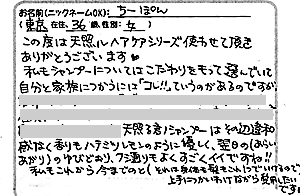 お名前(ニックネームOK): ちーぽん
(東京在住、36歳、性別: 女)
この度は天照ルヘアケアシリーズ使わせて頂き
ありがとうございます
私もシャンプーについてはこだわりをもって選んでいて
自分と家族につかうには「コレ!!」っていうのがあるのですが
天照るシャンプーはその辺違和
感なく香りもハチミツレモンのように優しく、翌日の(あらい
あがり)のゆびどおり、フミ通りもよくすごくイイですね!!
私もこれから今までのと(それは気候や髪をみて)でいけるので
上手につかいわけながら愛用したい
です